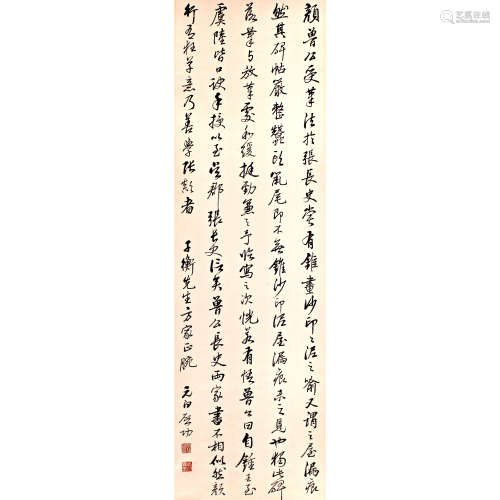 顏魯公受筆法於張長史嘗有錐畫沙印印泥之喻又謂之屋漏痕
然其碑帖嚴整蠶頭鼠尾即不無錐沙印泥屋漏痕未之見也獨此碑
落筆與放筆處和緩挺勁兼之予臨寫之次恍若有悟魯公曰自鍾王至
虞陸皆口訣手授以至吳郡張長史信矣魯公長史兩家書不相似然顏
行有狂草意乃善學張顛者
子衡先生方家正腕
元白啓功